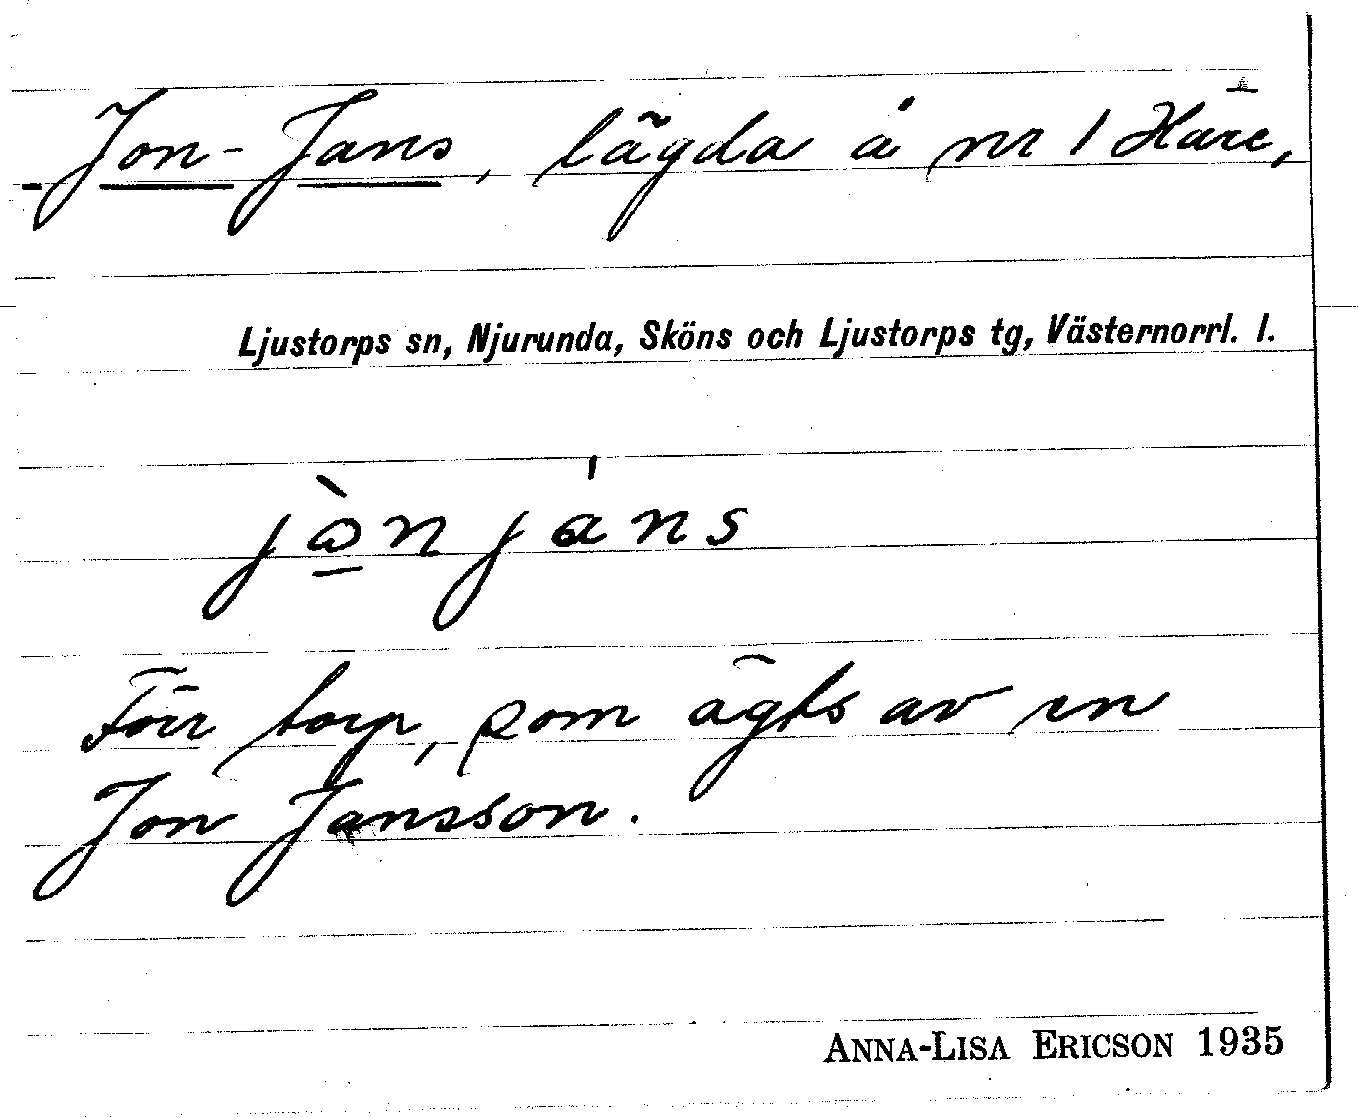 Jon-Jans, lägda å nr 1 Häre,
Ljustorps sn, Njurunda, Sköns och Ljustorps tg, Västernorrl. l.
jɑ̱̀n ja̍ns
Förr torp, som ägts av en
Jon Jansson.
ANNA-LISA ERICSON 1935